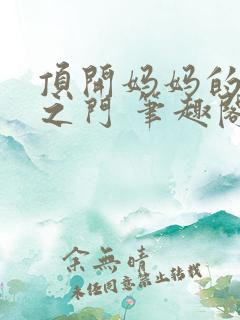 頂開妈妈的
之门 筆趣阁
余無晴
未经同意禁止转载